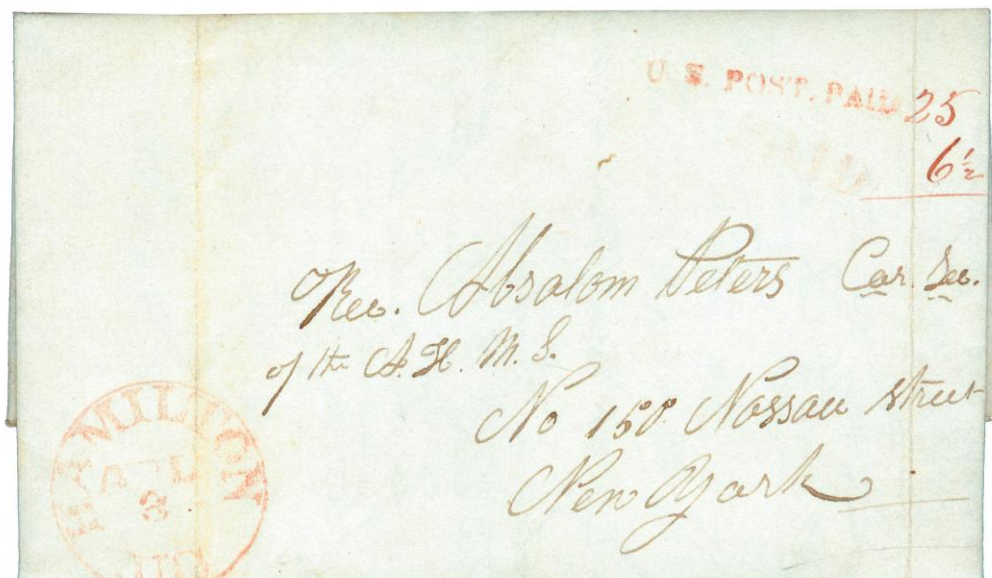 U. S. POST. PAID 25
PAID 6½
Rev. Absalom Peters Cor. Sec.
of the A. H. M. S.
No 150 Nassau street
New York
HAMILTON
APL
3